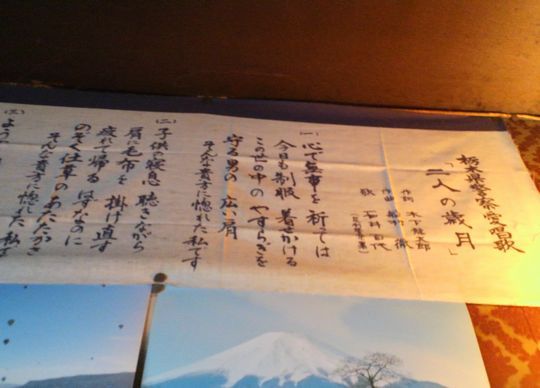 栃木県警察愛唱歌
「二人の歳月」
作詞
作曲
歌
(一) 心で無事を祈っては
今日も制服着せかける
この世の中のやすらぎを
守る男の広い肩
そんな貴方に惚れた私です
(二) 子供の寝息聴きながら
肩に毛布を掛け直す
疲れて帰るはずなのに
のぞく仕草のあたたかさ
そんな貴方に惚れた私です
(三)